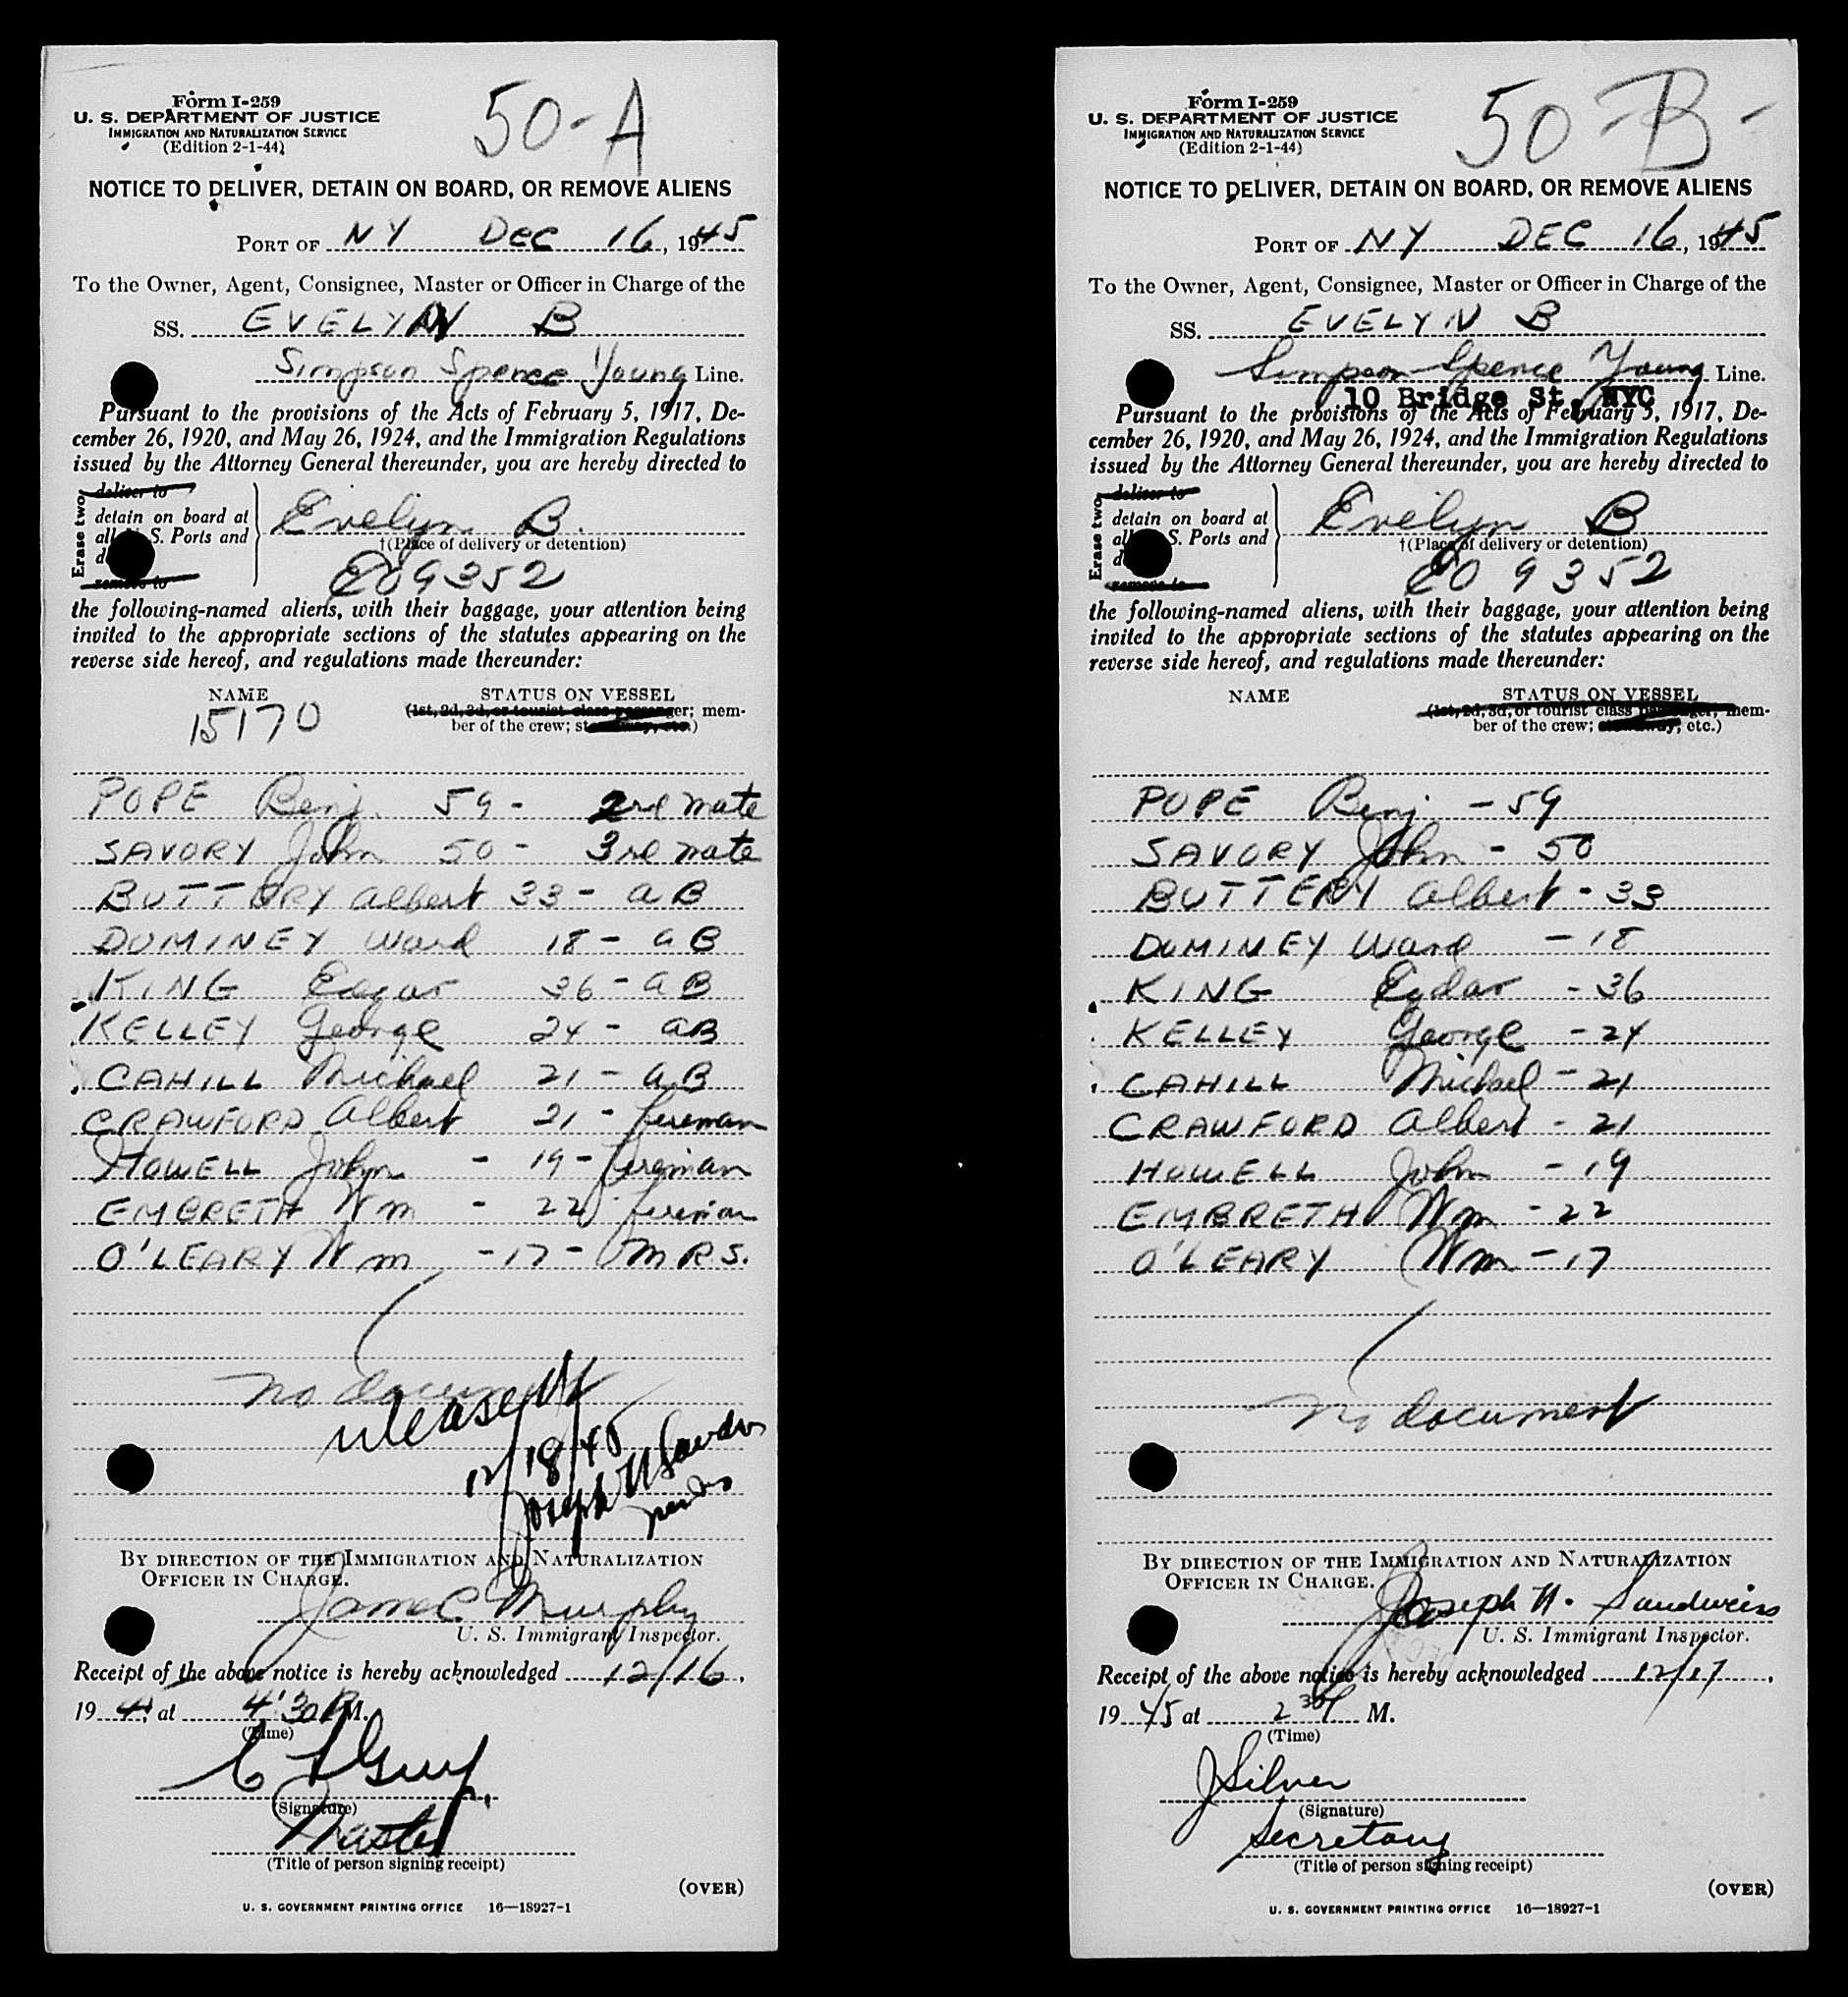 Form I-259
U. S. DEPARTMENT OF JUSTICE
IMMIGRATION AND NATURALIZATION SERVICE
(Edition 2-1-44)
50-A
NOTICE TO DELIVER, DETAIN ON BOARD, OR REMOVE ALIENS
PORT OF NY Dec 16, 1945
To the Owner, Agent, Consignee, Master or Officer in Charge of the
SS. EVELYN B
Simpson Spence Young Line.
Pursuant to the provisions of the Acts of February 5, 1917, De-
cember 26, 1920, and May 26, 1924, and the Immigration Regulations
issued by the Attorney General thereunder, you are hereby directed to
Erase two
deliver to
detain on board at
all U. S. Ports and
remove to
Evelyn B.
†(Place of delivery or detention)
E09352
the following-named aliens, with their baggage, your attention being
invited to the appropriate sections of the statutes appearing on the
reverse side hereof, and regulations made thereunder:
NAME STATUS ON VESSEL
15170 (1st, 2d, 3d, or tourist class passenger; mem-
ber of the crew; stowaway, etc.)
POPE Benj. 59 - 2nd mate
SAVORY John 50 - 3rd mate
BUTTERY Albert 33 - AB
DOMINEY Ward 18 - AB
KING Edgar 36 - AB
KELLEY George 24 - AB
CAHILL Michael 21 - AB
CRAWFORD Albert 21 - fireman
HOWELL John - 19 - fireman
EMBRETH Wm - 22 fireman
O'LEARY Wm - 17 - MRS.
no document
released
12/18/45
Joseph N
BY DIRECTION OF THE IMMIGRATION AND NATURALIZATION
OFFICER IN CHARGE.
James Murphy
U. S. Immigrant Inspector.
Receipt of the above notice is hereby acknowledged 12/16,
19 4, at 4:30 P.M.
(Time)
(Signature)
Master
(Title of person signing receipt)
(OVER)
U. S. GOVERNMENT PRINTING OFFICE 16—18927-1
Form I-259
U. S. DEPARTMENT OF JUSTICE
IMMIGRATION AND NATURALIZATION SERVICE
(Edition 2-1-44)
50-B-
NOTICE TO DELIVER, DETAIN ON BOARD, OR REMOVE ALIENS
PORT OF NY DEC 16, 1945
To the Owner, Agent, Consignee, Master or Officer in Charge of the
SS. EVELYN B
Simpson Spence Young Line.
10 Bridge St, NYC
Pursuant to the provisions of the Acts of February 5, 1917, De-
cember 26, 1920, and May 26, 1924, and the Immigration Regulations
issued by the Attorney General thereunder, you are hereby directed to
Erase two
deliver to
detain on board at
all U. S. Ports and
remove to
Evelyn B
†(Place of delivery or detention)
E0 9352
the following-named aliens, with their baggage, your attention being
invited to the appropriate sections of the statutes appearing on the
reverse side hereof, and regulations made thereunder:
NAME STATUS ON VESSEL
(1st, 2d, 3d, or tourist class passenger; mem-
ber of the crew; stowaway, etc.)
POPE Benj - 59
SAVORY John - 50
BUTTERY Albert - 33
DOMINEY Ward - 18
KING Eydar - 36
KELLEY George - 24
CAHILL Michael - 21
CRAWFORD Albert - 21
HOWELL John - 19
EMBRETH Wm - 22
O'LEARY Wm - 17
no document
BY DIRECTION OF THE IMMIGRATION AND NATURALIZATION
OFFICER IN CHARGE.
Joseph N. Sandweiss
U. S. Immigrant Inspector.
Receipt of the above notice is hereby acknowledged 12/17,
19 45 at 2 30 P M.
(Time)
J Silver
(Signature)
Secretary
(Title of person signing receipt)
(OVER)
U. S. GOVERNMENT PRINTING OFFICE 16—18927-1